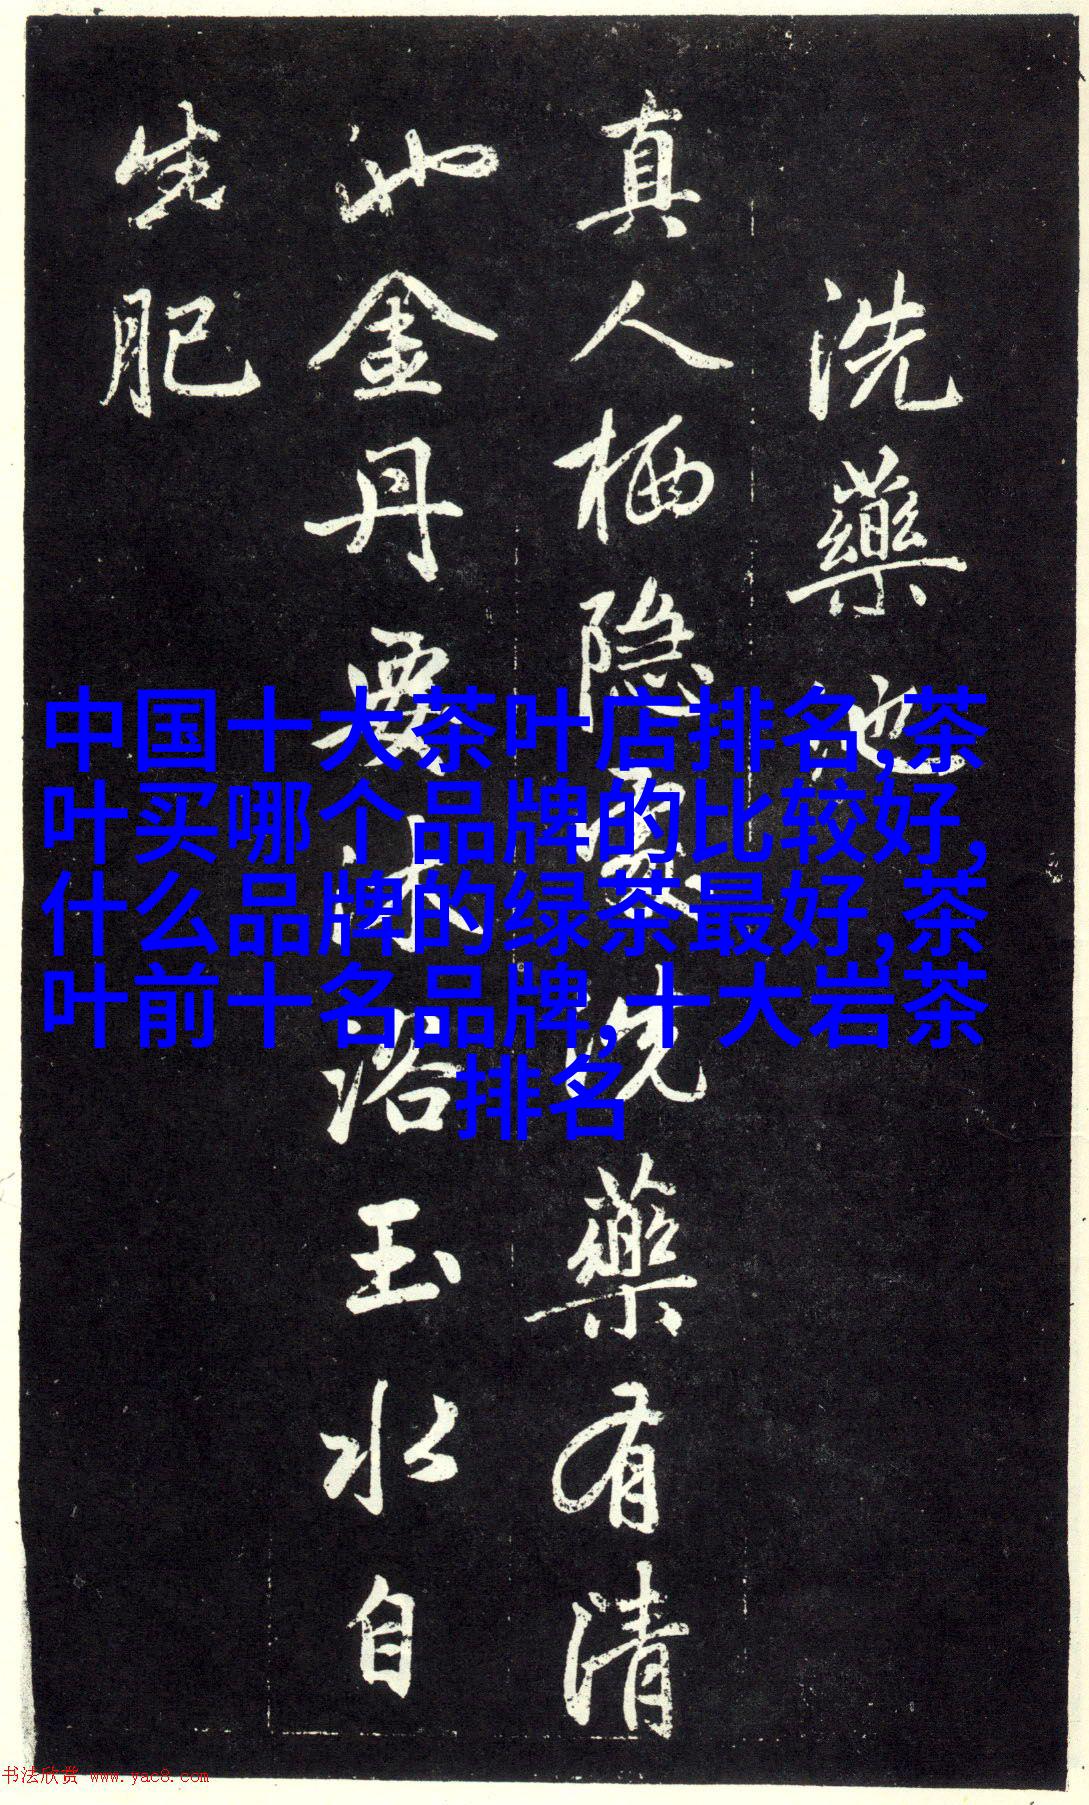 洗藥池
真人栖隐處洗藥有清
池金丹要沐浴玉水自
生肥
中国十大茶叶店排名,茶
叶买哪个品牌的比较好,
什么品牌的绿茶最好,茶
叶前十名品牌,十大岩茶
排名
书法欣赏 www.yac8.com